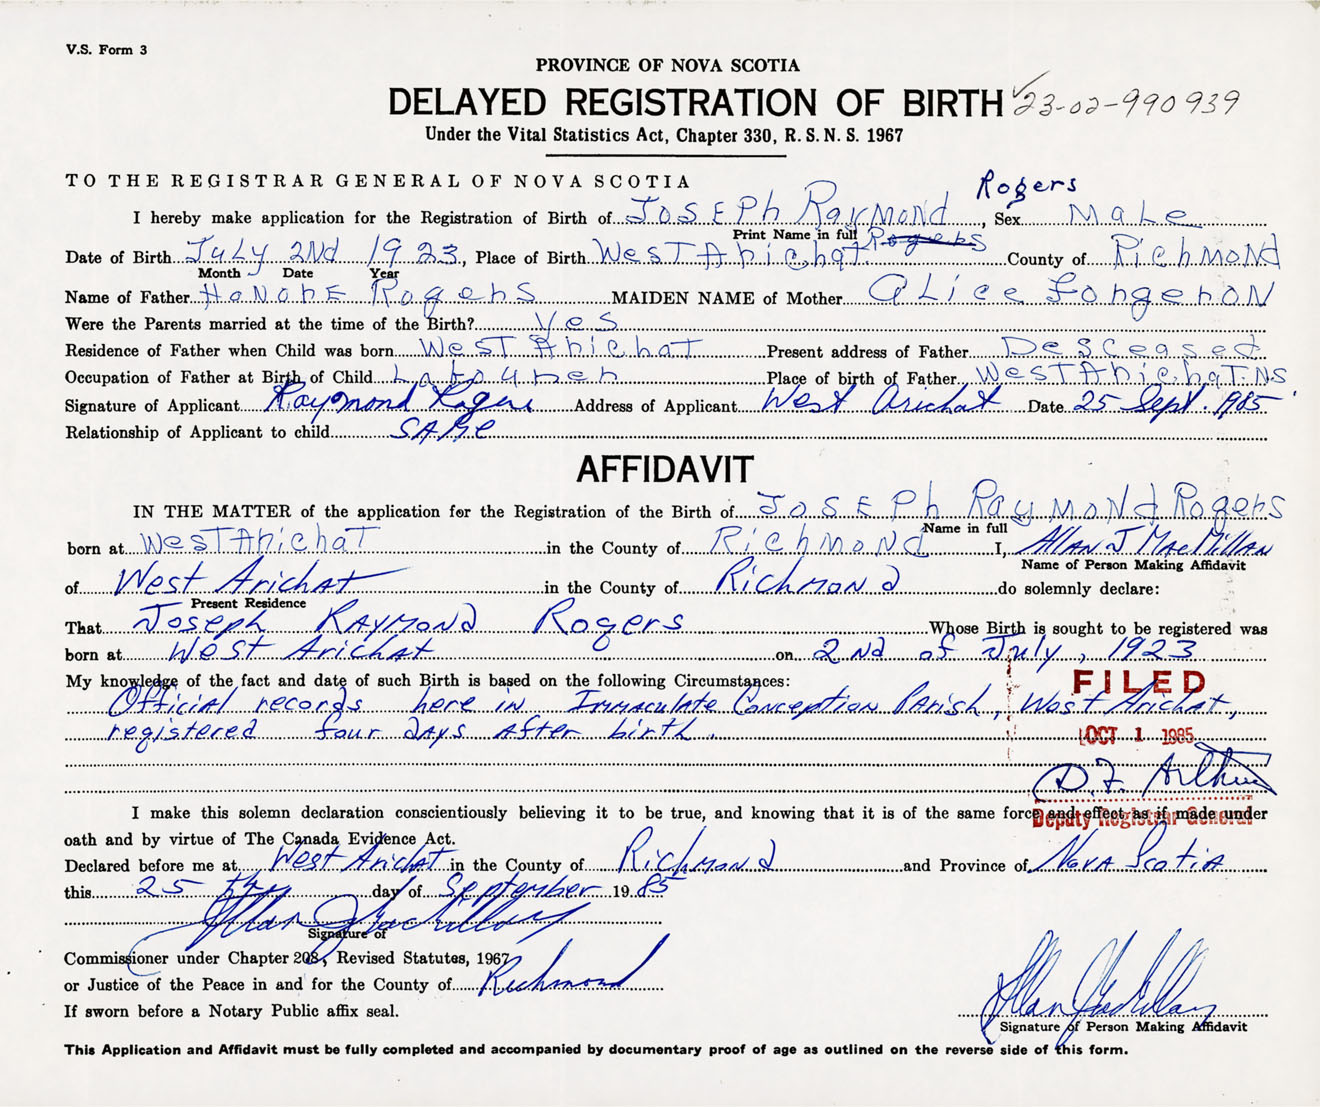 V.S. Form 3
PROVINCE OF NOVA SCOTIA
DELAYED REGISTRATION OF BIRTH 23-02-990939
Under the Vital Statistics Act, Chapter 330, R. S. N. S. 1967
TO THE REGISTRAR GENERAL OF NOVA SCOTIA
Rogers
I hereby make application for the Registration of Birth of Joseph Raymond, Sex Male
Print Name in full Rogers
Date of Birth July 2nd 1923, Place of Birth West Arichat County of Richmond
Month Date Year
Name of Father Honore Rogers MAIDEN NAME of Mother Alice Forgeron
Were the Parents married at the time of the Birth? Yes
Residence of Father when Child was born West Arichat Present address of Father Desceased
Occupation of Father at Birth of Child Labourer Place of birth of Father West Arichat NS
Signature of Applicant Raymond Rogers Address of Applicant West Arichat Date 25 Sept. 1985
Relationship of Applicant to child SAME
AFFIDAVIT
IN THE MATTER of the application for the Registration of the Birth of Joseph Raymond Rogers
Name in full
born at West Arichat in the County of Richmond I, Allan J MacMillan
Name of Person Making Affidavit
of West Arichat in the County of Richmond do solemnly declare:
Present Residence
That Joseph Raymond Rogers Whose Birth is sought to be registered was
born at West Arichat on 2nd of July, 1923
My knowledge of the fact and date of such Birth is based on the following Circumstances:
FILED
Official records here in Immaculate Conception Parish, West Arichat,
registered four days after birth.
OCT 1 1985
D.F. Arthur
I make this solemn declaration conscientiously believing it to be true, and knowing that it is of the same force and effect as if made under
Deputy Registrar General
oath and by virtue of The Canada Evidence Act.
Declared before me at West Arichat in the County of Richmond and Province of Nova Scotia
this 25 th day of September 1985
Allan J MacMillan
Signature of
Commissioner under Chapter 208, Revised Statutes, 1967
or Justice of the Peace in and for the County of Richmond
If sworn before a Notary Public affix seal.
Allan J MacMillan
Signature of Person Making Affidavit
This Application and Affidavit must be fully completed and accompanied by documentary proof of age as outlined on the reverse side of this form.